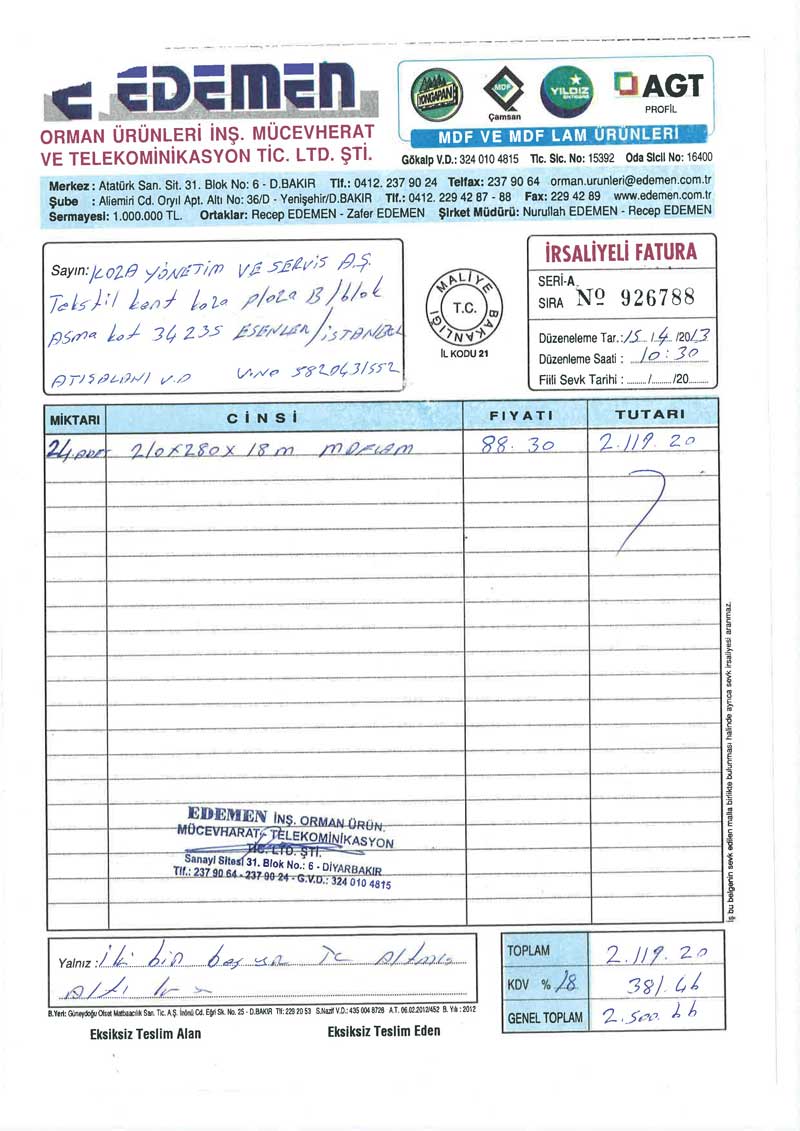 EDEMEN
ORMAN ÜRÜNLERİ İNŞ. MÜCEVHERAT
VE TELEKOMİNİKASYON TİC. LTD. ŞTİ.
YONGAPAN
MDF
Çamsan
YILDIZ
ENTEGRE
AGT
PROFİL
MDF VE MDF LAM ÜRÜNLERİ
Gökalp V.D.: 324 010 4815 Tic. Sic. No: 15392 Oda Sicil No: 16400
Merkez : Atatürk San. Sit. 31. Blok No: 6 - D.BAKIR Tlf.: 0412. 237 90 24 Telfax: 237 90 64 orman.urunleri@edemen.com.tr
Şube : Aliemiri Cd. Oryıl Apt. Altı No: 36/D - Yenişehir/D.BAKIR Tlf.: 0412. 229 42 87 - 88 Fax: 229 42 89 www.edemen.com.tr
Sermayesi: 1.000.000 TL. Ortaklar: Recep EDEMEN - Zafer EDEMEN Şirket Müdürü: Nurullah EDEMEN - Recep EDEMEN
Sayın: KOZA YÖNETİM VE SERVİS A.Ş.
Tekstil kent koza plaza B/blok
Asma kat 34235 ESENLER/İSTANBUL
ATIŞALANI V.D V.NO 5820431552
MALİYE BAKANLIĞI
T.C.
İL KODU 21
İRSALİYELİ FATURA
SERİ-A
SIRA Nº 926788
Düzeneleme Tar.: 15/4/2013
Düzenleme Saati : 10:30
Fiili Sevk Tarihi : ......../......../20........
MİKTARI CİNSİ FİYATI TUTARI
24 ADET 210x280x18m MDFLAM 88.30 2.119.20
EDEMEN İNŞ. ORMAN ÜRÜN.
MÜCEVHARAT- TELEKOMİNİKASYON
TİC. LTD. ŞTİ.
Sanayi Sitesi 31. Blok No.: 6 - DİYARBAKIR
Tlf.: 237 90 64 - 237 90 24 - G.V.D.: 324 010 4815
İş bu belgenin sevk edilen malla birlikte bulunması halinde ayrıca sevk irsaliyesi aranmaz.
Yalnız : İki bin beş yüz TL Altmış
Altı kr
TOPLAM 2.119.20
KDV % 18 381.46
GENEL TOPLAM 2.500.66
B.Yeri: Güneydoğu Ofset Matbaacılık San. Tic. A.Ş. İnönü Cd. Eğri Sk. No. 25 - D.BAKIR Tlf: 229 20 53 S.Nazif V.D.: 435 004 8726 A.T. 06.02.2012/452 B. Yılı : 2012
Eksiksiz Teslim Alan
Eksiksiz Teslim Eden